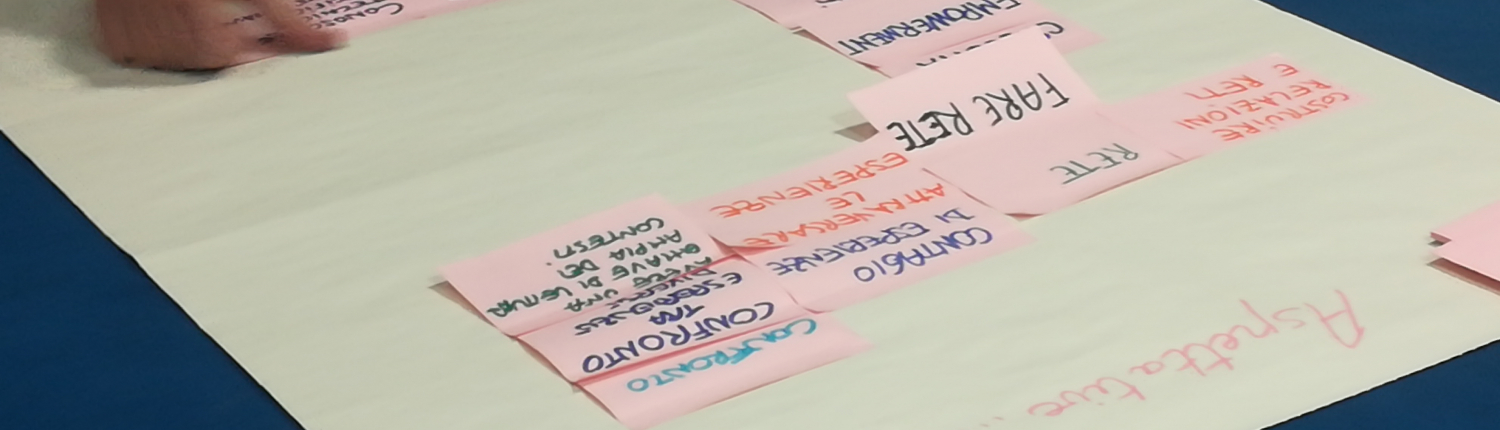 Aspettative..
CONFRONTO
CONFRONTO
TRA
DIVERSE
CONTAGIO
DI ESPERIENZE
AVERE UNA
CHIAVE DI LETTURA
AMPIA DEI
CONTESTI
ATTRAVERSARE
LE
ESPERIENZE
RETE
COSTRUIRE
RELAZIONI
E RETI
FARE RETE
EMPOWERMENT